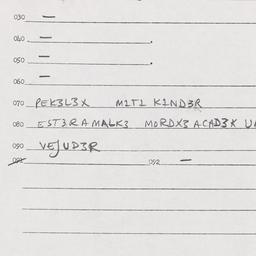 030 —
040 — .
050 — .
060 —
070 PEK3L3X M1T1 K1ND3R
080 EST3R A MALK3 MORDX3 ACAD3K
090 VEJUD3R
091 092 —